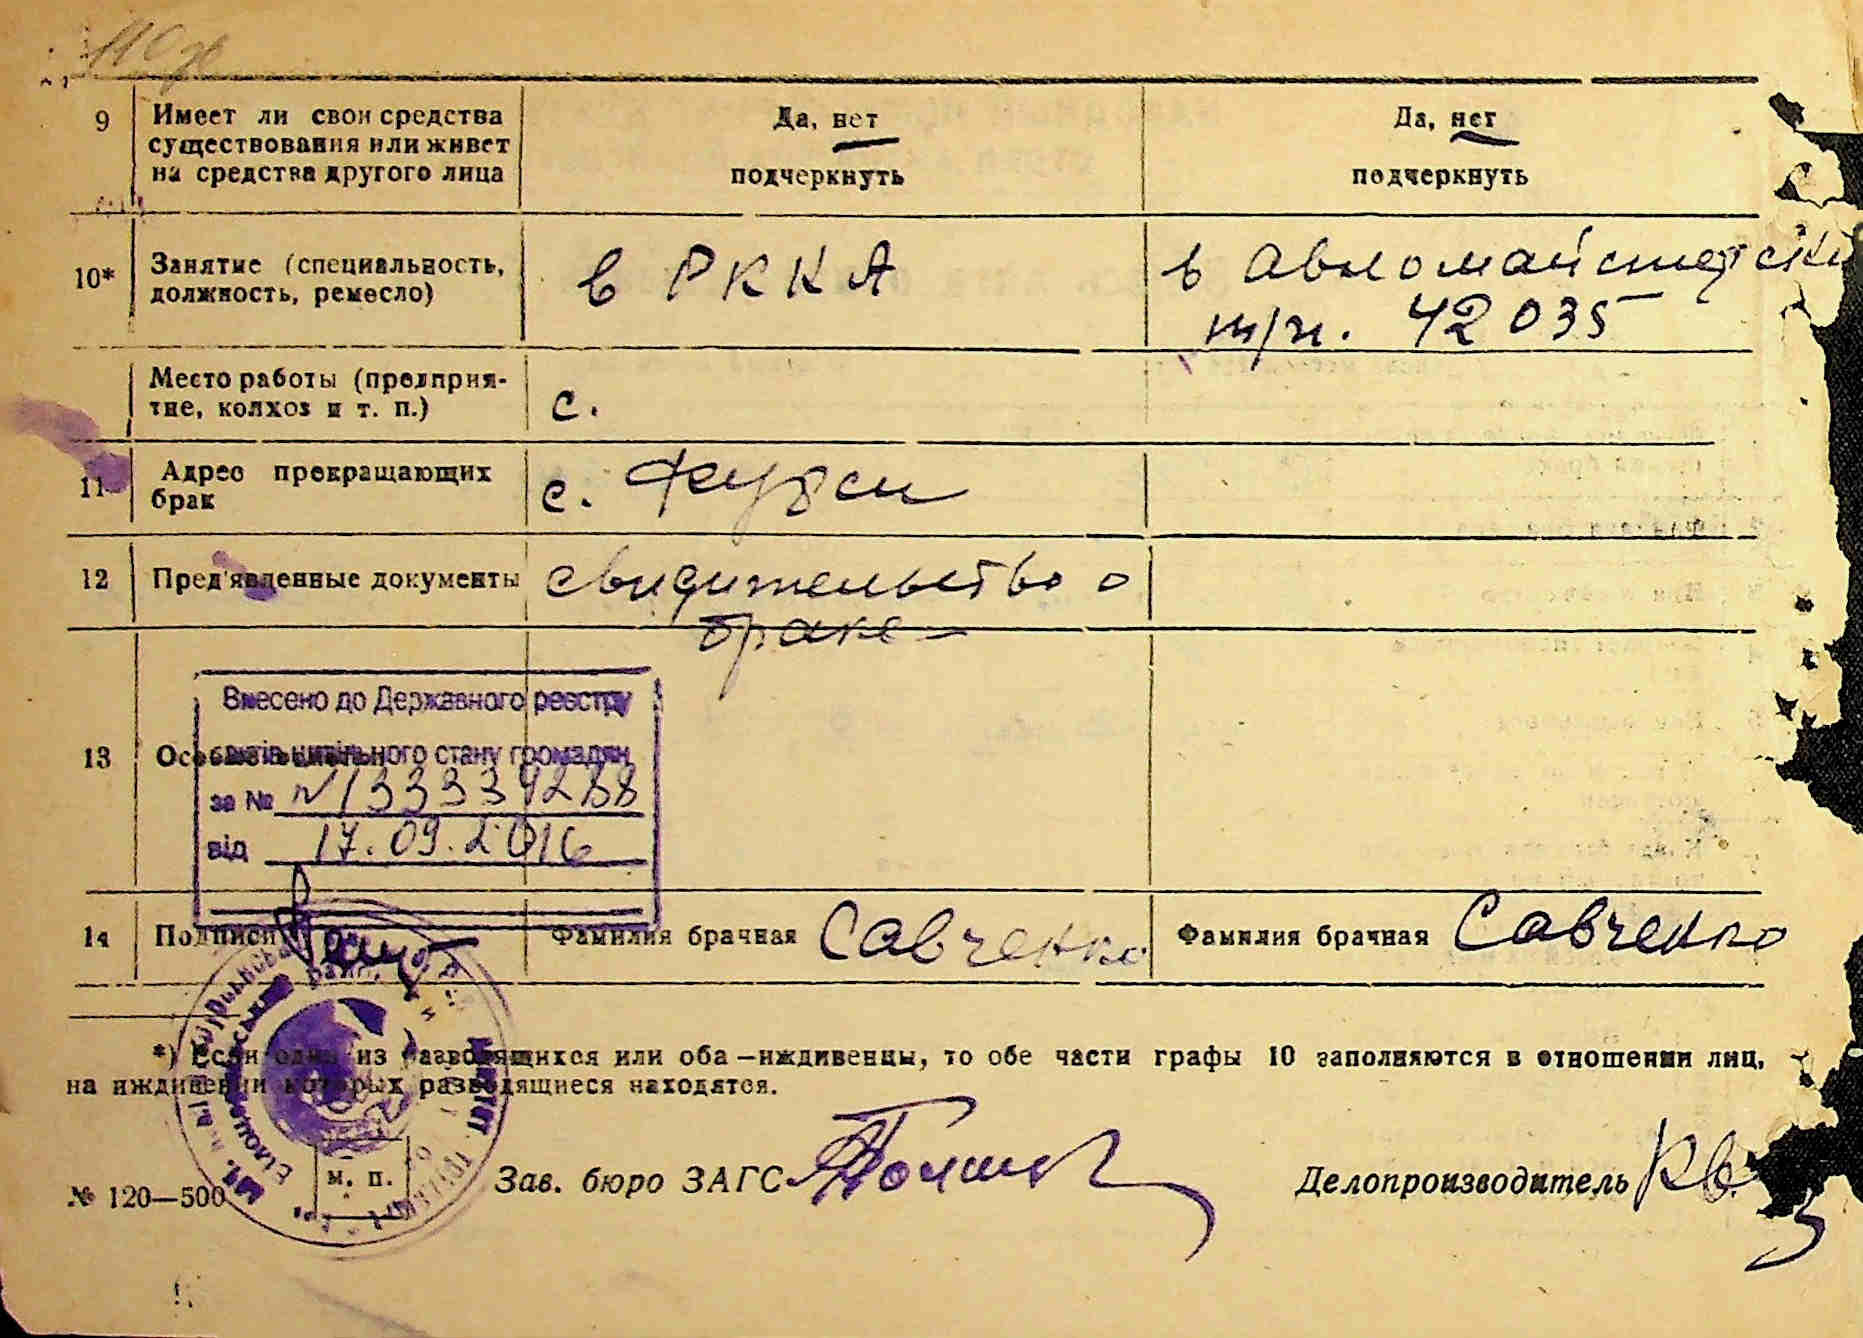 110
9 Имеет ли свои средства существования или живет на средства другого лица Да, нет подчеркнуть Да, нет подчеркнуть
10* Занятие (специальность, должность, ремесло) в РККА в автомайстерски т/п. 42035
Место работы (предприятие, колхоз и т. п.) с.
11 Адрес прекращающих брак с.
12 Пред'явленные документы свидительство о браке
Внесено до Державного реєстру
актів цивільного стану громадян
за № 133339288
від 17.09.2016
13
14 Подписи Фамилия брачная Савченко Фамилия брачная Савченко
*) Если один из разводящихся или оба—иждивенцы, то обе части графы 10 заполняются в отношении лиц,
на иждивении которых разводящиеся находятся.
м. п.
Зав. бюро ЗАГС Делопроизводитель
№ 120—500